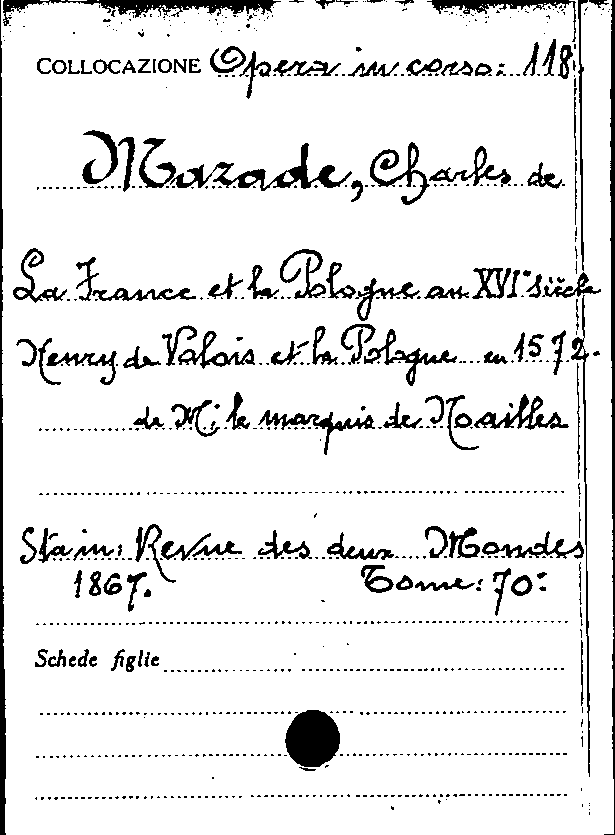 COLLOCAZIONE Opera in corso: 118.
Mazade, Charles de
La France et la Pologne au XVIe Siècle
Henry de Valois et la Pologne en 1572.
de M; le marquis de Noailles
Sta in: Revue des deux Mondes
1867. Tome: 70:
Schede figlie